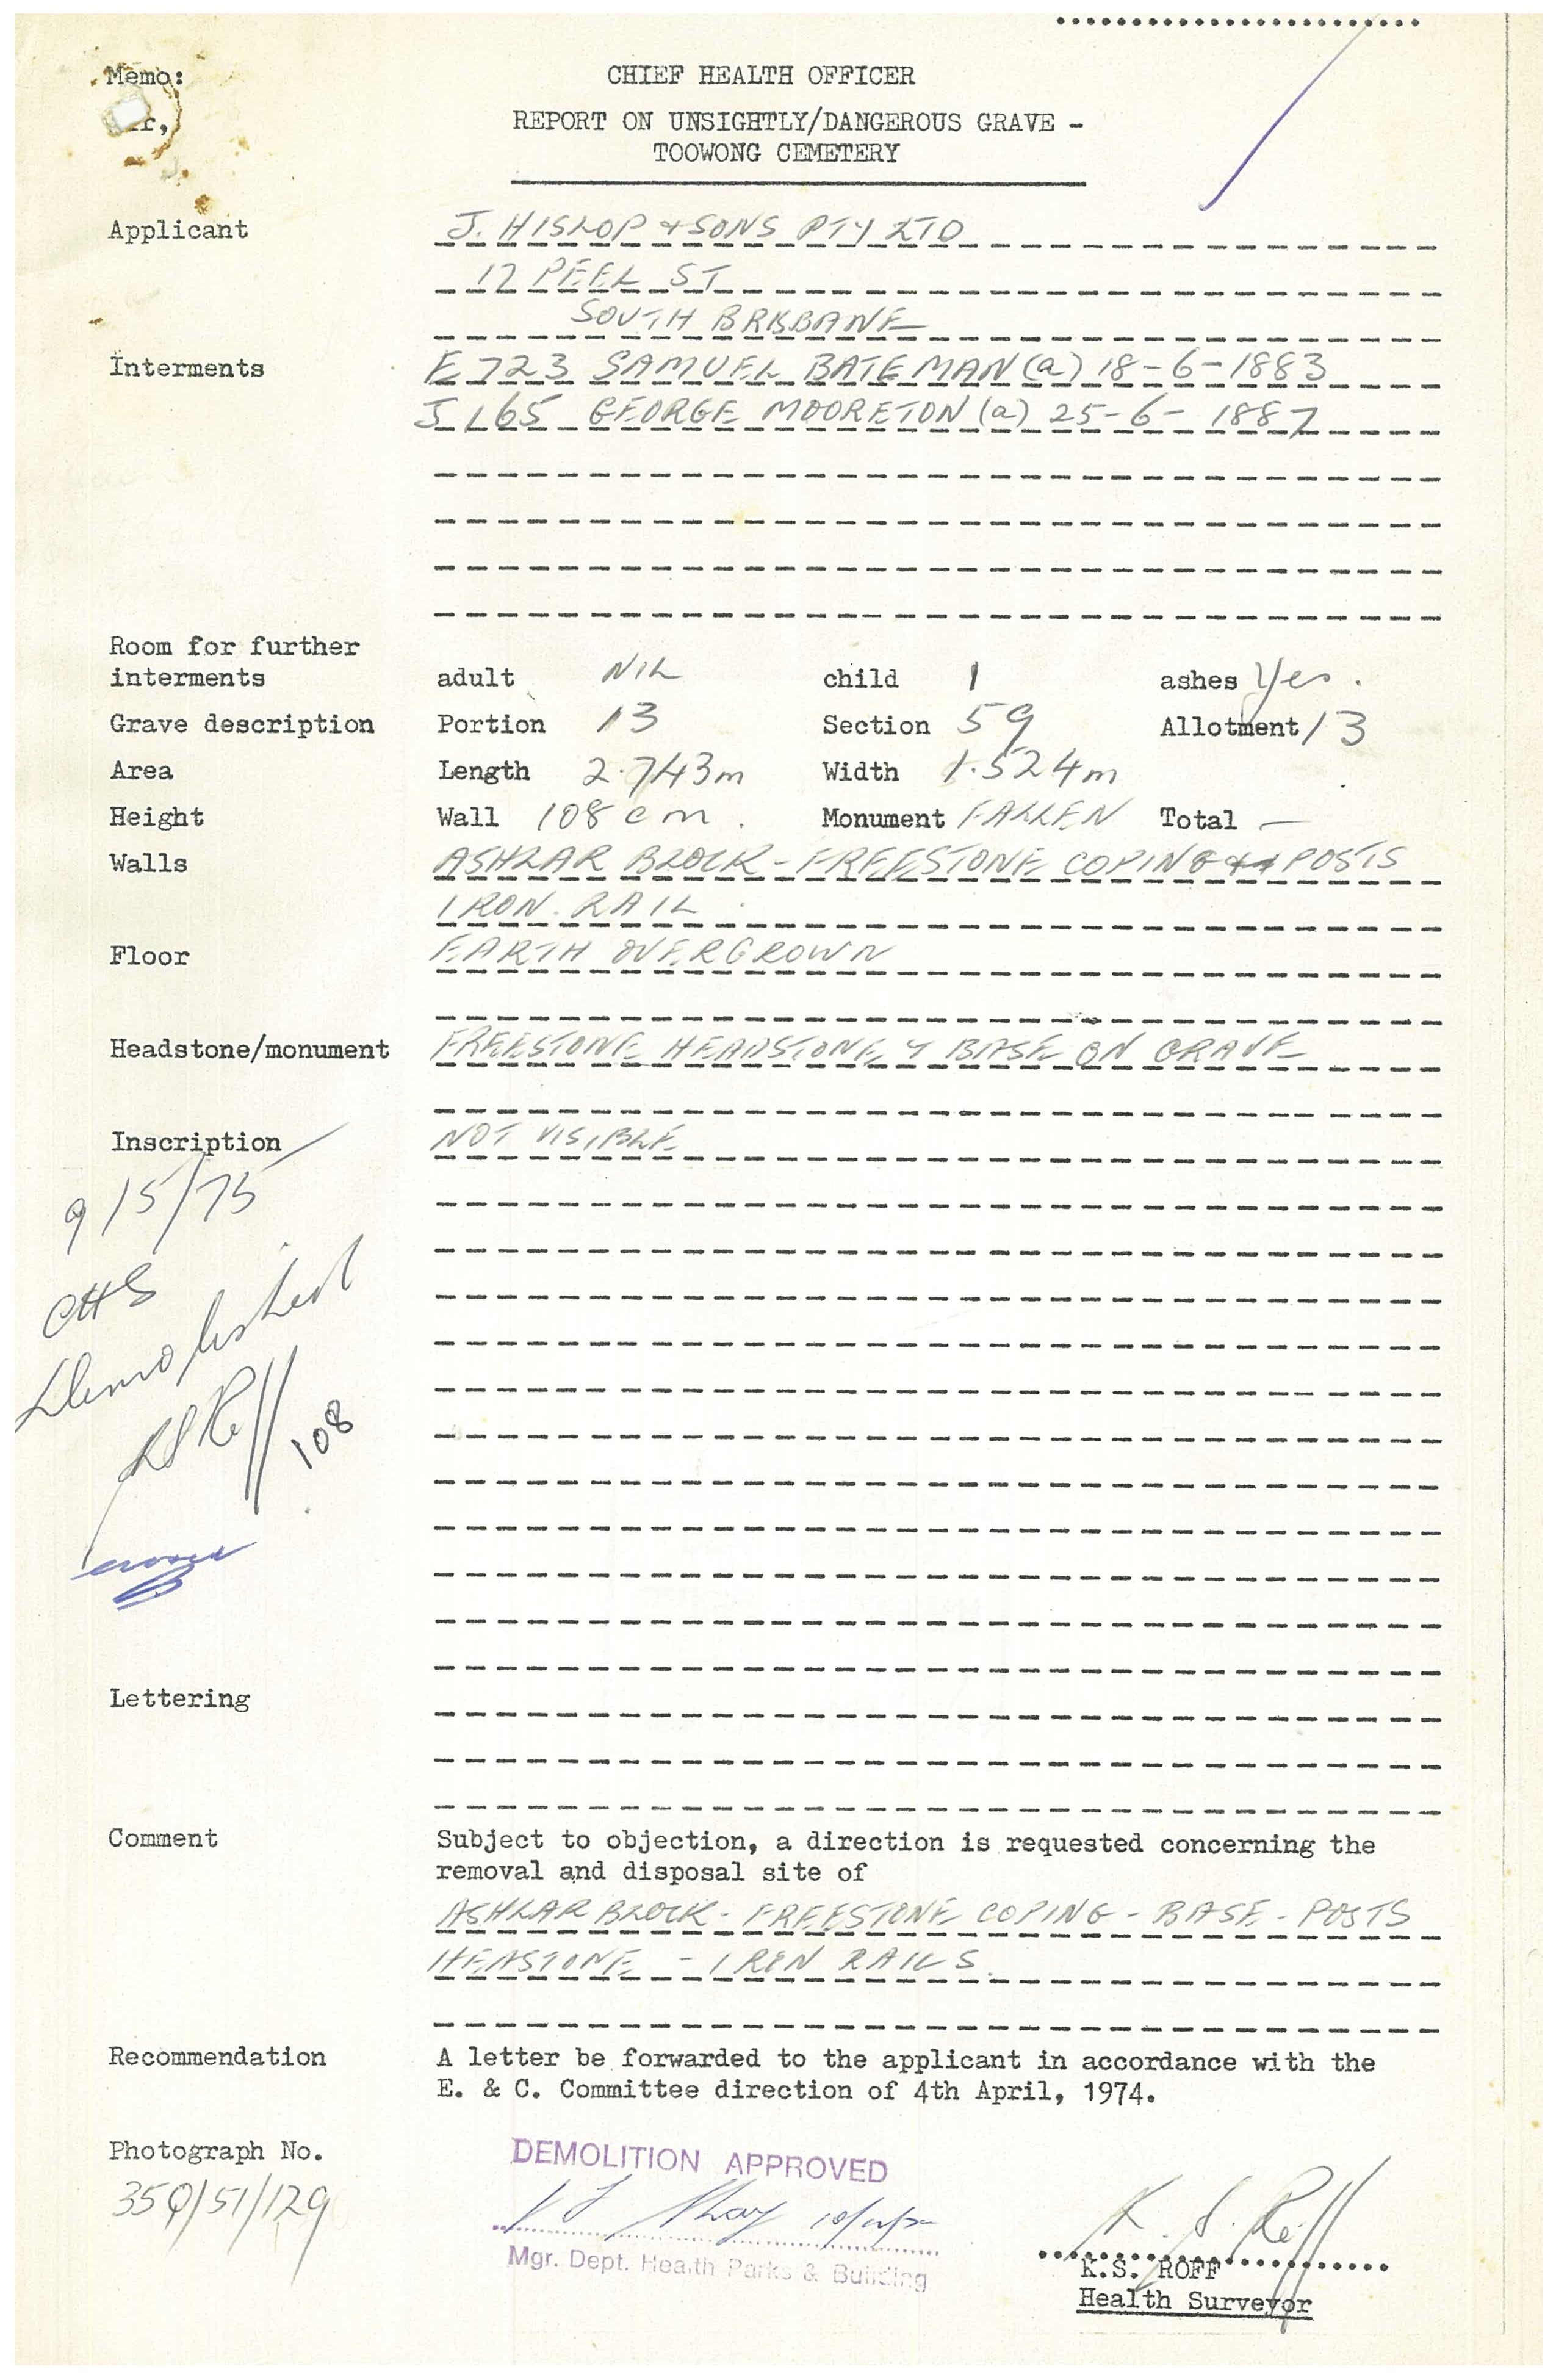 Memo:
CHIEF HEALTH OFFICER
REPORT ON UNSIGHTLY/DANGEROUS GRAVE -
TOOWONG CEMETERY
Applicant J. HISLOP & SONS PTY LTD
17 PEEL ST
SOUTH BRISBANE
Interments E 723 SAMUEL BATEMAN (a) 18-6-1883
J 165 GEORGE MOORETON (a) 25-6-1887
Room for further
interments adult NIL child 1 ashes Yes.
Grave description Portion 13 Section 59 Allotment 13
Area Length 2.743m Width 1.524m
Height Wall 108 cm. Monument FALLEN Total —
Walls ASHLAR BLOCK - FREESTONE COPING & POSTS
IRON RAIL
Floor EARTH OVERGROWN
Headstone/monument FREESTONE HEADSTONE & BASE ON GRAVE
Inscription NOT VISIBLE
9/5/75
CHS
Demolished
KS Roff
108
Lettering
Comment Subject to objection, a direction is requested concerning the
removal and disposal site of
ASHLAR BLOCK - FREESTONE COPING - BASE - POSTS
HEASTONE - IRON RAILS.
Recommendation A letter be forwarded to the applicant in accordance with the
E. & C. Committee direction of 4th April, 1974.
Photograph No. DEMOLITION APPROVED
35Q/51/129
K. S. Roff
Mgr. Dept. Health Parks & Building
K.S. ROFF
Health Surveyor